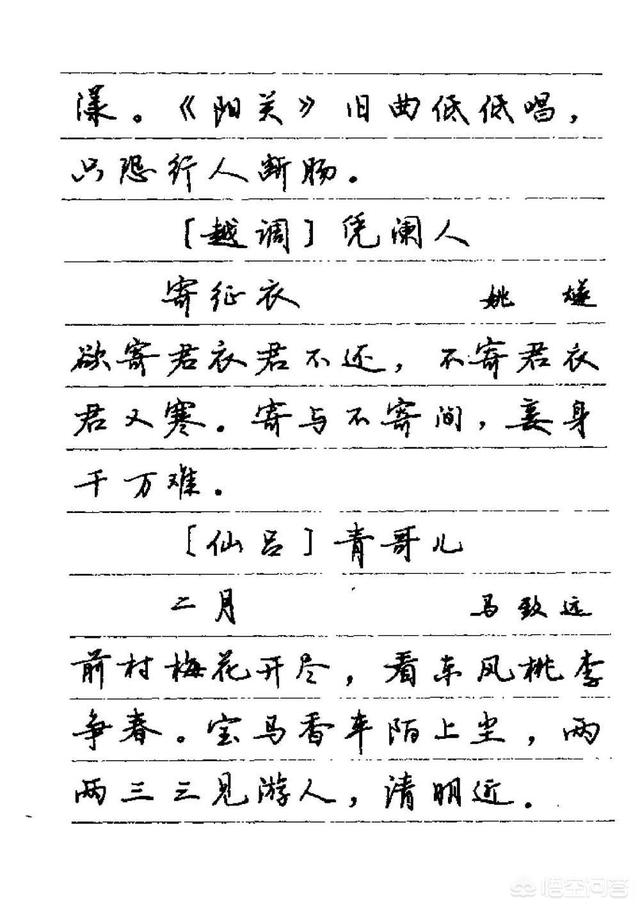 漾。《阳关》旧曲低低唱，
只恐行人断肠。
［越调］凭阑人
寄征衣 姚燧
欲寄君衣君不还，不寄君衣
君又寒。寄与不寄间，妾身
千万难。
［仙吕］青哥儿
二月 马致远
前村梅花开尽，看东风桃李
争春。宝马香车陌上尘，两
两三三见游人，清明近．
悟空问答